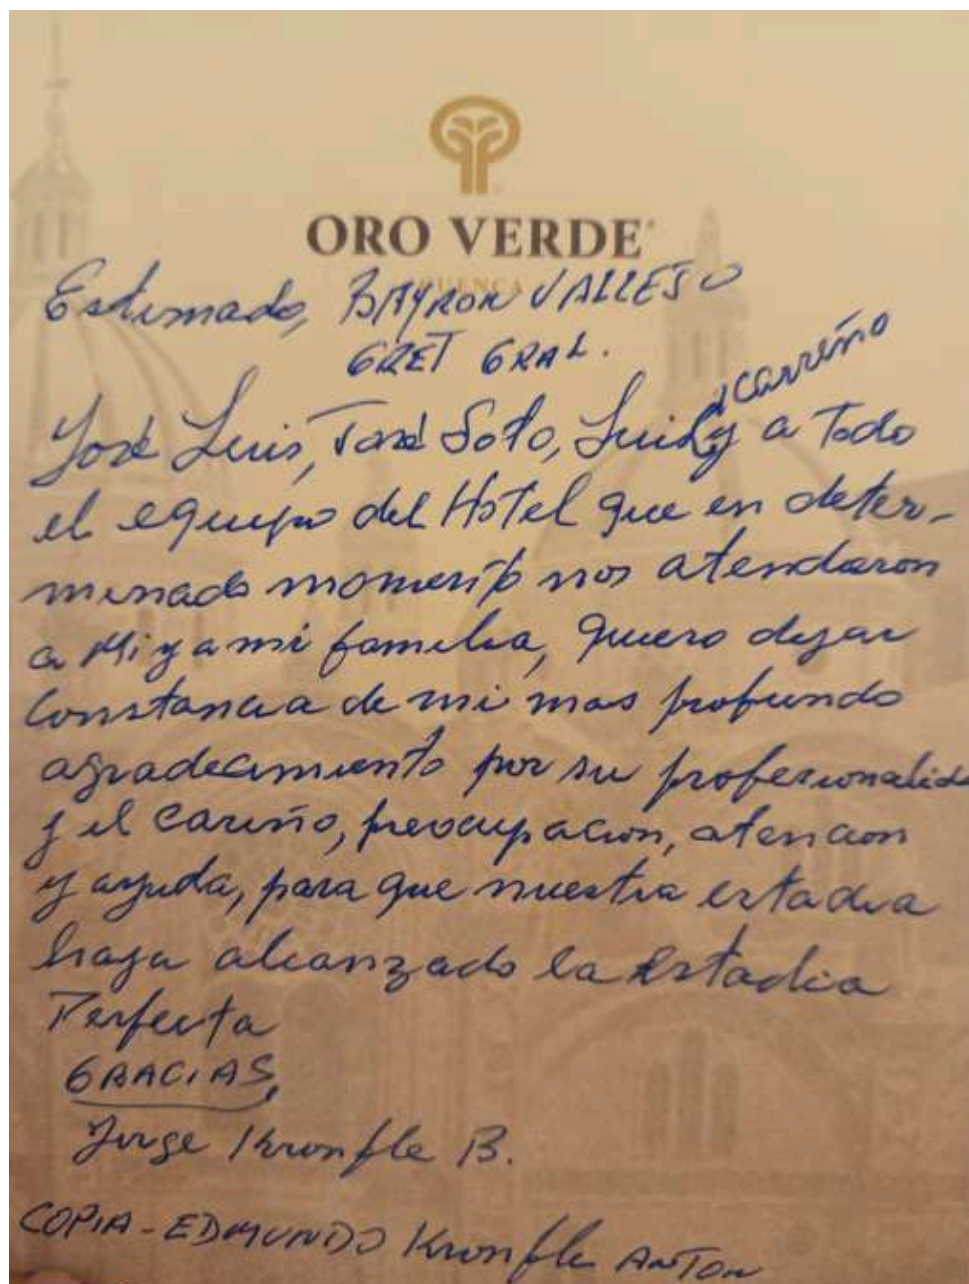 ORO VERDE
CUENCA
Estimado, BAYRON VALLEJO
GRET GRAL.
José Luis, José Soto, Luis Carreño y a Todo
el equipo del Hotel que en deter-
minado momento nos atendaron
a Mi y a mi familia, quiero dejar
Constancia de mi mas profundo
agradecimiento por su profesionalid
y el cariño, preocupacion, atencion
y ayuda, para que nuestra estadia
haya alcanzado la Estadia
Perfecta
GRACIAS,
Jorge Kronfle B.
COPIA - EDMUNDO Kronfle ANTON